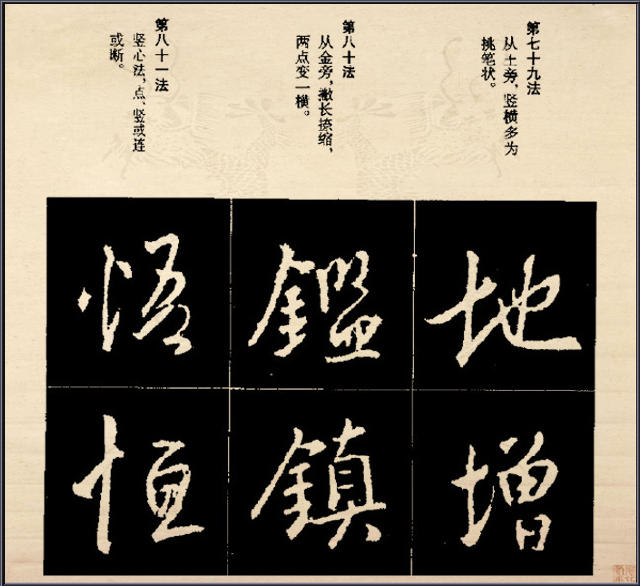 第七十九法
从土旁，竖横多为
挑笔状。
第八十法
从金旁，撇长捺缩，
两点变一横。
第八十一法
竖心法，点、竖或连
或断。
地
增
鑑
鎮
悟
恒